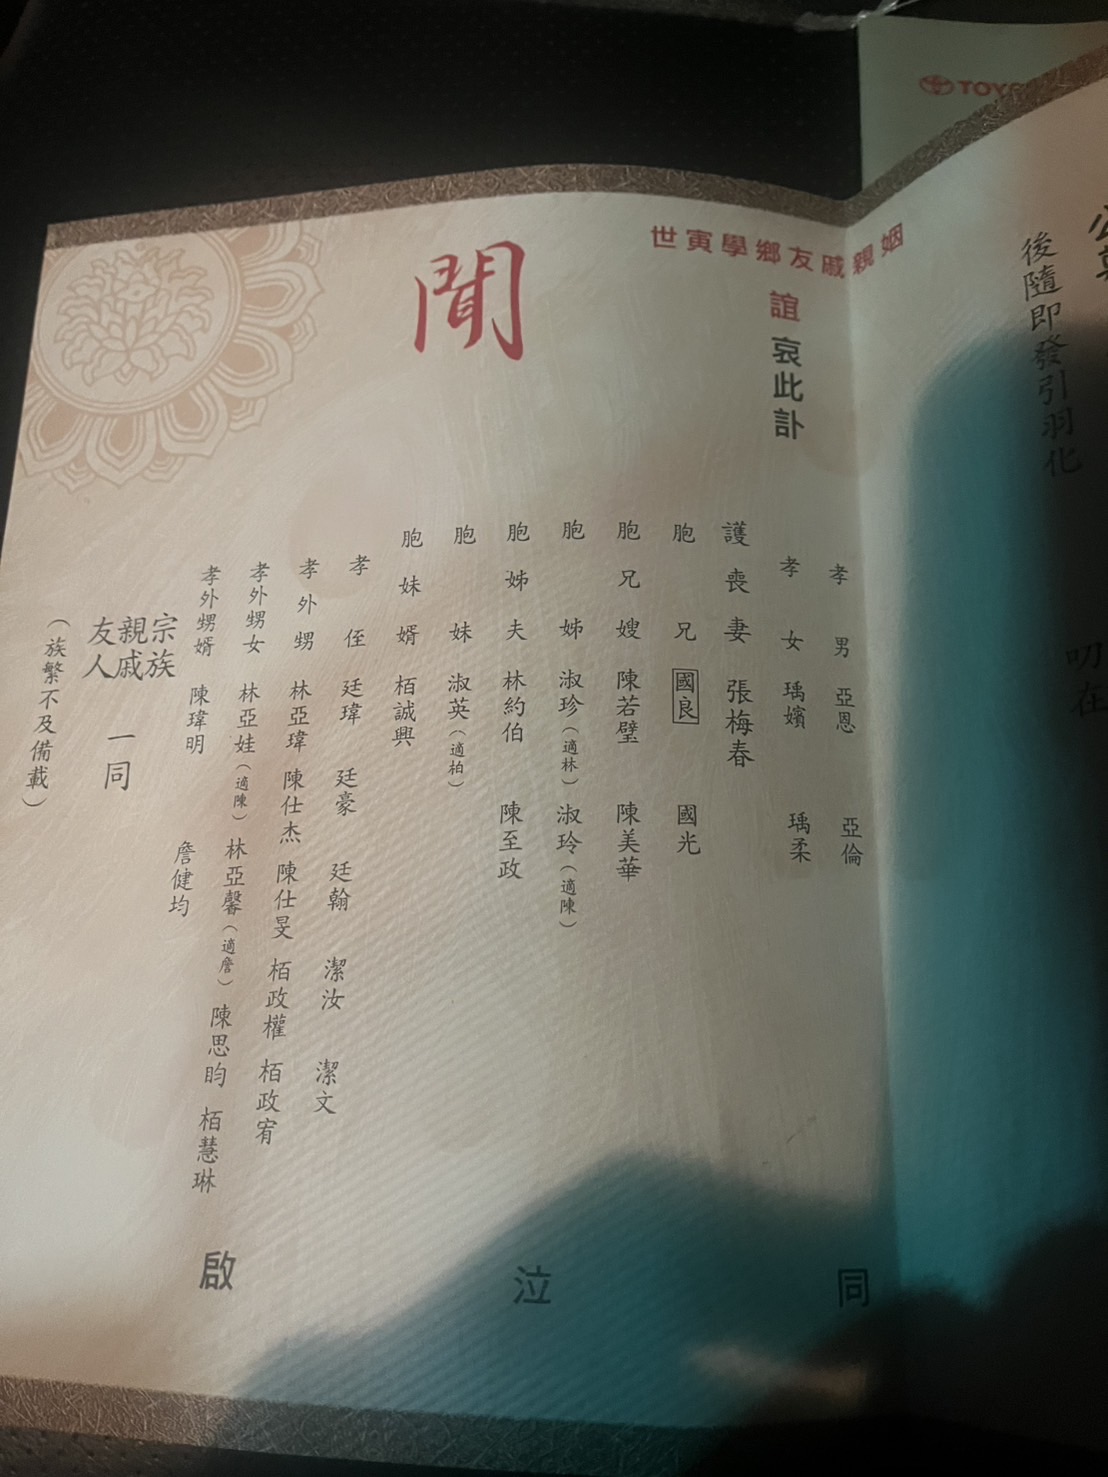 TOYO
後隨即發引羽化
叨在
姻親戚友鄉學寅世
誼哀此訃
聞
孝男 亞恩 亞倫
孝女 瑀嬪 瑀柔
護喪妻 張梅春
胞兄 國良 國光
胞兄嫂 陳若璧 陳美華
胞姊 淑珍(適林) 淑玲(適陳)
胞姊夫 林約伯 陳至政
胞妹 淑英(適柏)
胞妹婿 栢誠興
孝侄 廷瑋 廷豪 廷翰 潔汝 潔文
孝外甥 林亞瑋 陳仕杰 陳仕旻 栢政權 栢政宥
孝外甥女 林亞娃(適陳) 林亞馨(適詹) 陳思昀 栢慧琳
孝外甥婿 陳瑋明 詹健均
宗族
親戚
友人 一同
(族繁不及備載)
同泣啟